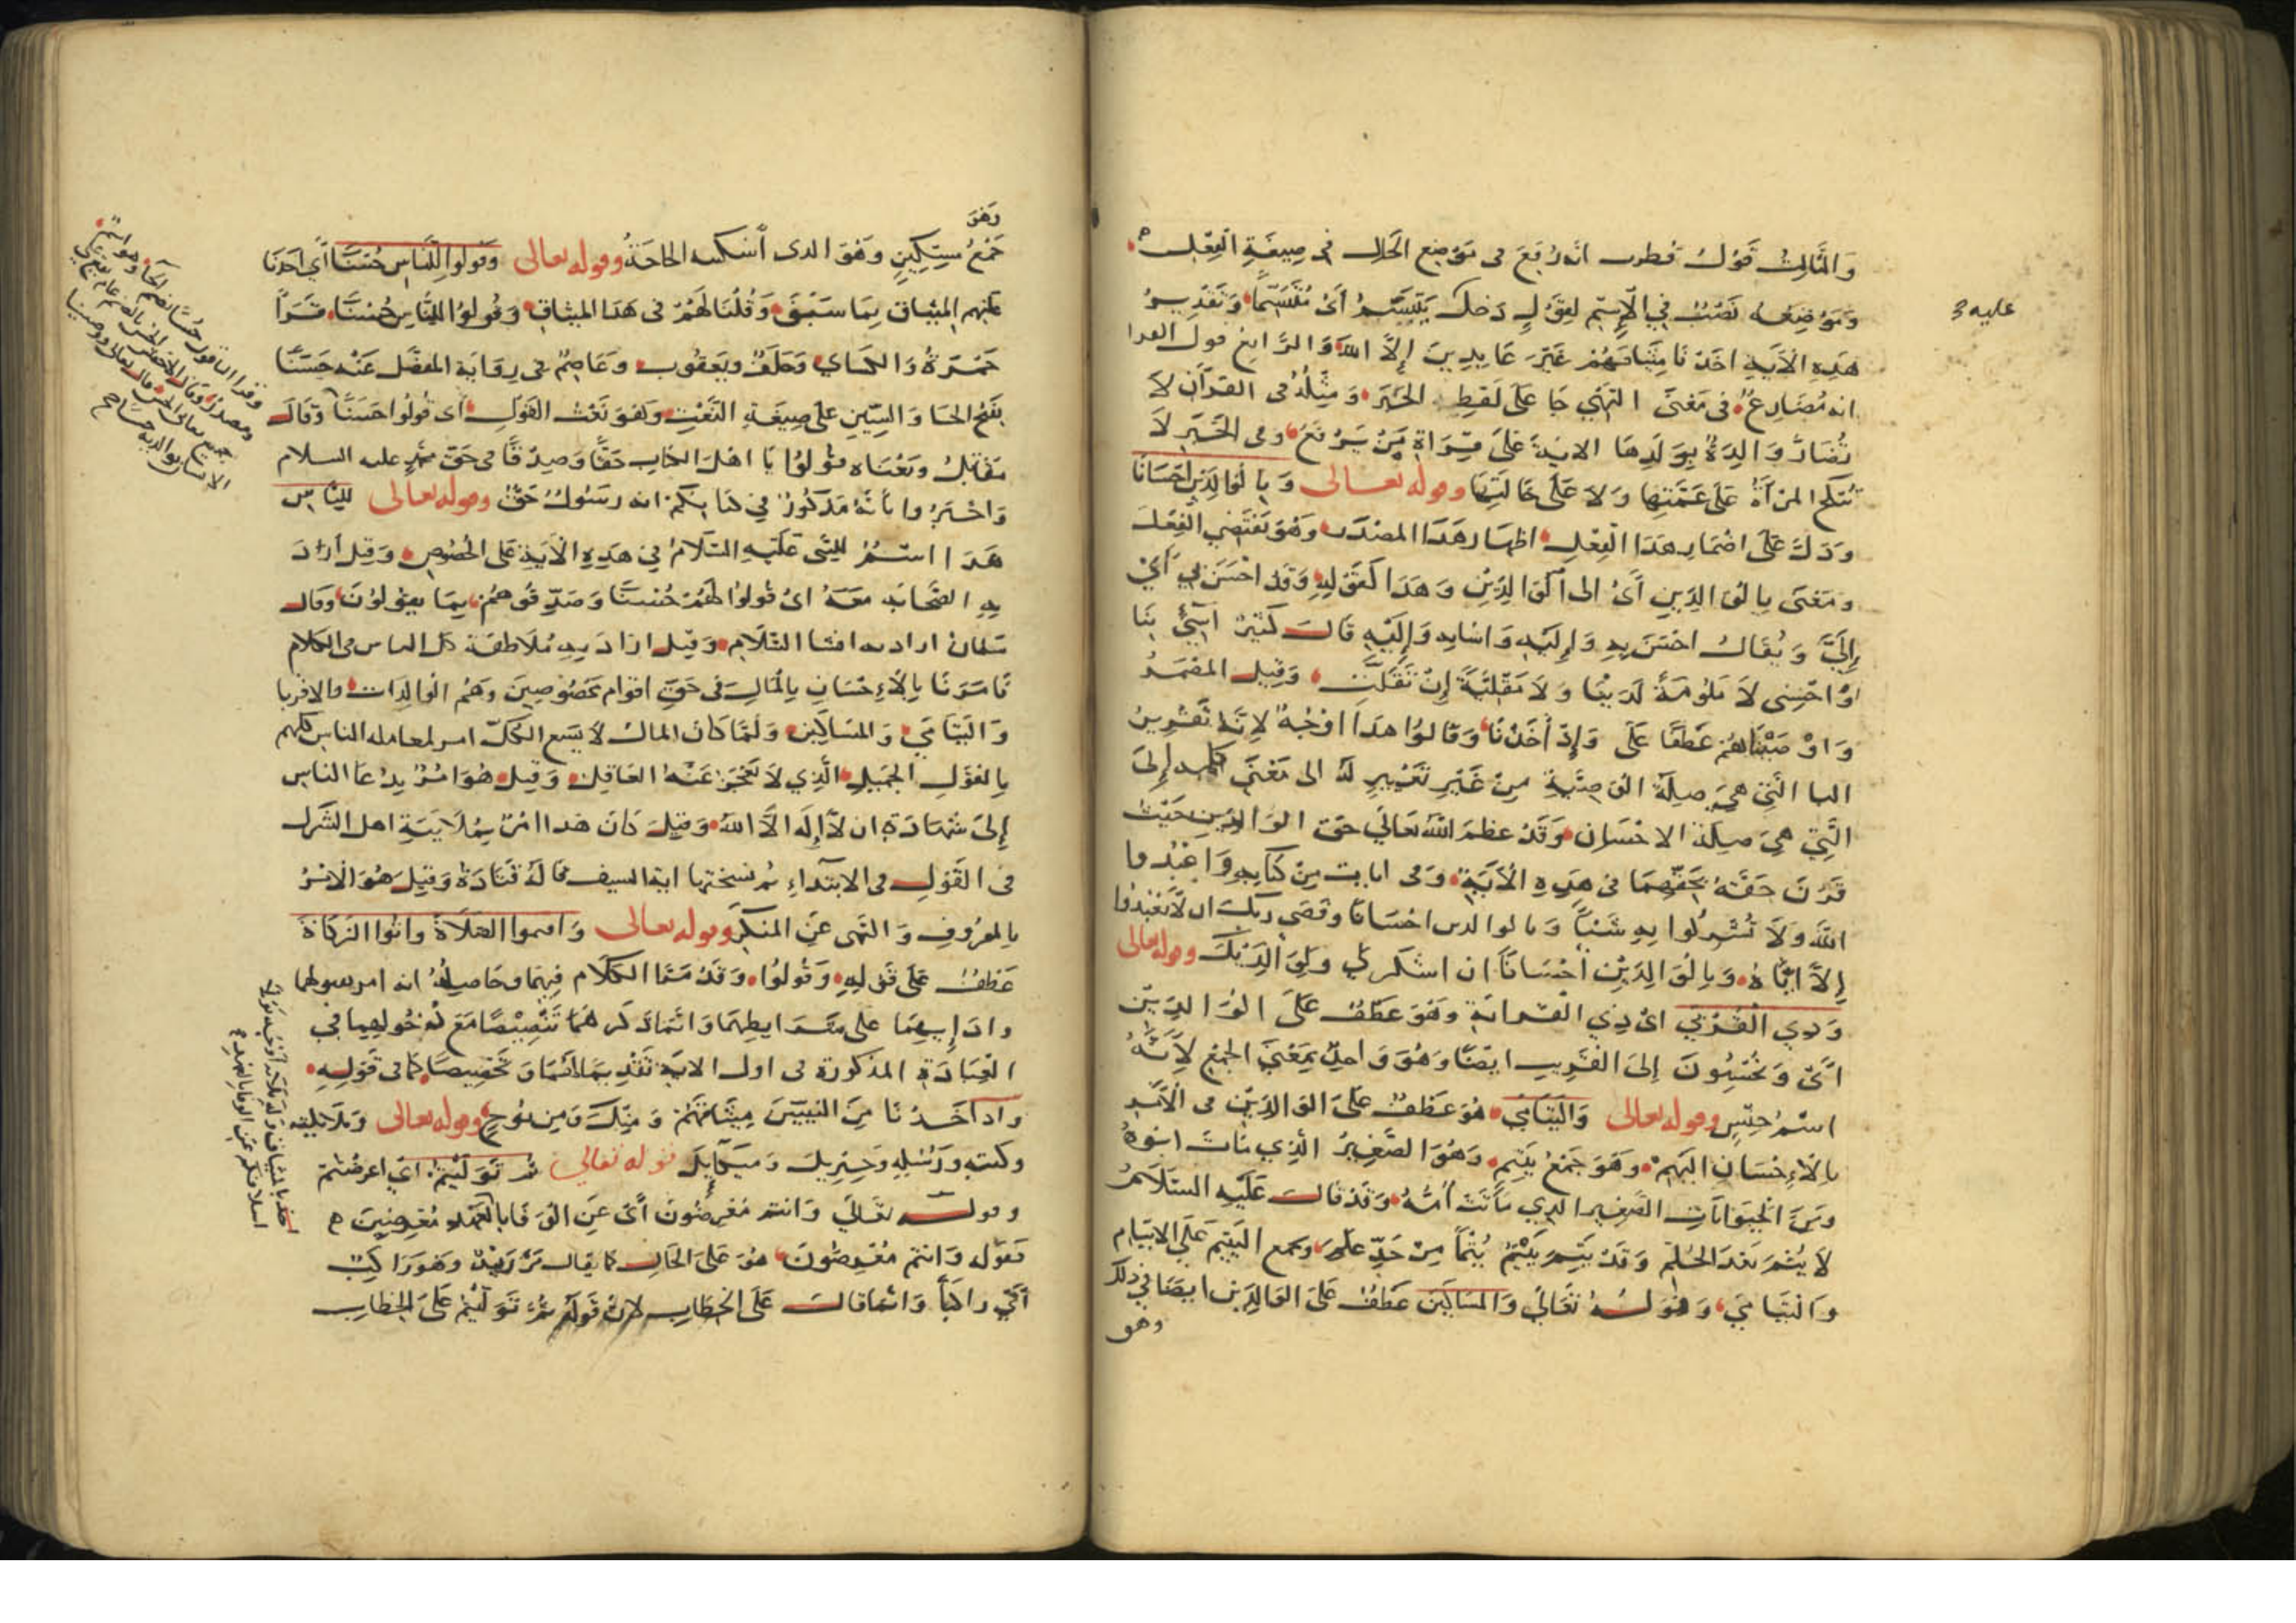 والثالث قول قطرب انه رفع في موضع الحال في صيغة الفعل
وموضعه نصب في الاسم لقول دخلك يتبسم أي متبسما وتقدير
عليه
هذه الآية اخذنا ميثاقهم غير عابدين إلا الله والرابع قول الفرا
انه مضارع في معنى النهي جا على لفظ الخبر ومثله في القرآن لا
تضار والدة بولدها الاية على قراة من يرفع وفي الخبر لا
تنكح المرأة على عمتها ولا على خالتها وقوله تعالى وبالوالدين احسانا
ودل على اضمار هذا الفعل اظهار هذا المصدر وهو يقتضي الفعل
ومعنى بالوالدين أي الى الوالدين وهذا كقوله وقد احسن بي أي
إلي ويقال احسن به وإليه واسا به وإليه قال كثير اسيئي بنا
او احسني لا ملومة لدينا ولا مقلية إن تقلت وقيل المضمر
واوصيناهم عطفا على وإذ أخذنا وقالوا هذا اوجه لانه تقرير
البا التي هي صلة الوصية من غير تغيير له الى معنى كلمه إلى
التي هي صلة الاحسان وقد عظم الله تعالى حق الوالدين حيث
قرن حقه بحقهما في هذه الآية وفي ايات من كتابه واعبدوا
الله ولا تشركوا به شيئا وبالوالدين احسانا وقضى ربك ان لا تعبدوا
إلا اياه وبالوالدين احسانا ان اشكر لي ولوالديك وقوله تعالى
وذي القربى اي ذي القرابة وهو عطف على الوالدين
أي وتحسنون إلى القريب ايضا وهو واحد بمعنى الجمع لأنه
اسم جنس وقوله تعالى واليتامى هو عطف على الوالدين في الأمر
بالإحسان اليهم وهو جمع يتيم وهو الصغير الذي مات ابوه
ومن الحيوانات الصغير الذي ماتت أمه وقد قال عليه السلام
لا يتم بعد الحلم وقد يتم ييتم يتما من حد علم وجمع اليتيم على الايتام
واليتامى وقوله تعالى والمساكين عطف على الوالدين ايضا في ذلك
وهو
وهو
جمع مسكين وهو الذي أسكنته الحاجة وقوله تعالى وقولوا للناس حسنا أي اخذنا
عليهم الميثاق بما سبق وقلنا لهم في هذا الميثاق وقولوا للناس حسنا قرا
حمزة والكساي وخلف ويعقوب وعاصم في رواية المفضل عنه حسنا
بفتح الحا والسين على صيغة النعت وهو نعت القول أي قولوا حسنا وقال
مقاتل ومعناه قولوا يا اهل الكتاب حقا وصدقا في حق محمد عليه السلام
واخبروا بأنه مذكور في كتابكم انه رسول حق وقوله تعالى للناس
هذا اسم للنبي عليه السلام في هذه الآية على الخصوص وقيل أراد
به الصحابه معه اي قولوا لهم حسنا وصدقوهم بما يقولون وقال
سلمان اراد به افشا السلام وقيل اراد به ملاطفة كل الناس في الكلام
فامرنا بالإحسان بالمال في حق اقوام مخصوصين وهم الوالدات والاقربا
واليتامى والمساكين ولما كان المال لا يسع الكل امر لمعامله الناس كلهم
بالقول الجميل الذي لا يعجز عنه العاقل وقيل هو امر يدعا الناس
إلى شهادة ان لا إله الا الله وقيل كان هذا امر بملاينة اهل الشرك
في القول في الابتداء ثم نسختها اية السيف قاله قتادة وقيل هو الامر
بالمعروف والنهي عن المنكر وقوله تعالى واقيموا الصلاة واتوا الزكاة
عطف على قوله وقولوا وقد مضا الكلام فيهما وحاصله انه امر بقبولهما
وادايهما على شرايطهما وانما ذكرهما تنصيصا مع دخولهما في
العبادة المذكورة في اول الاية تقديما لشأنهما وتخصيصا كما في قوله
واذ اخذنا من النبيين ميثاقهم ومنك ومن نوح وقوله تعالى وملائكته
وكتبه ورسله وجبريل وميكايل قوله تعالى ثم توليتم أي اعرضتم
وقوله تعالى وانتم معرضون أي عن الوفا بالعهد معرضين
فقوله وانتم معرضون هو على الحال كما يقال مر زيد وهو راكب
أي راكبا وانما قال على الخطاب لان قوله ثم توليتم على الخطاب
وقرا الباقون حسنا بضم الحا وهو اسم
ومصدر وقال الاخفش